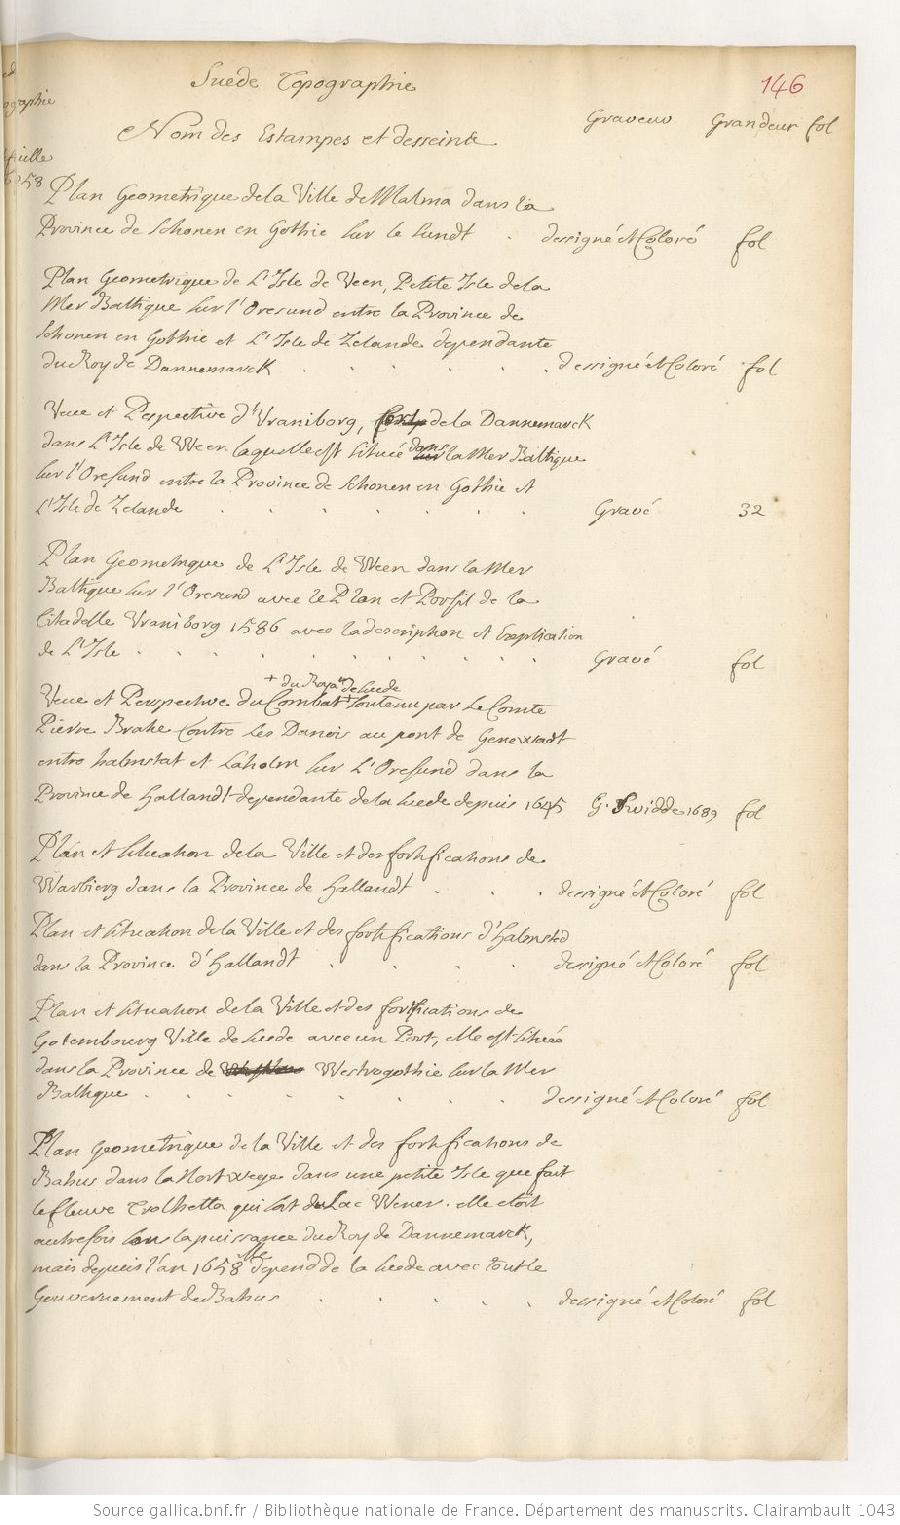 Suede Topographie
146
Nom des Estampes et desseins Graveur Grandeur fol
Plan Geometrique de la Ville de Malma dans la
Province de Schonen en Gothie sur le Sundt . dessigné et Coloré fol
Plan Geometrique de L'Isle de Veen, Petite Isle de la
Mer Baltique sur l'Oresund entre la Province de
Schonen en Gothie et L'Isle de Zelande dependante
du Roy de Dannemarck . . . . . dessigné et Coloré fol
Veue et Perspective d'Uraniborg, de la Dannemarck
dans L'Isle de Ween laquelle est située dans la Mer Baltique
sur l'Oresund entre la Province de Schonen en Gothie et
L'Isle de Zelande . . . . . . . Gravé 32
Plan Geometrique de L'Isle de Ween dans la Mer
Baltique sur l'Oresund avec le Plan et Porfil de la
Citadelle Uraniborg 1586 avec la description et Explication
de L'Isle . . . . . . . . . . Gravé fol
+ du Roya.e de Suede
Veue et Perspective du Combat + soutenu par Le Comte
Pierre Brahe Contre Les Danois au pont de Genevadt
entre halmstat et Laholm sur L'Oresund dans la
Province de Hallandt dependante de la Suede depuis 1645 G. Swidde 1689 fol
Plan et situation de la Ville et des fortifications de
Warbierg dans la Province de Hallandt . . . dessigné et Coloré fol
Plan et situation de la Ville et des fortifications d'Halmsted
dans la Province d'Hallandt . . . . dessigné et Coloré fol
Plan et situation de la Ville et des fortifications de
Gotembourg Ville de Suede avec un Port, elle est située
dans la Province de Westrogothie sur la Mer
Baltique . . . . . . . . dessigné et Coloré fol
Plan Geometrique de la Ville et des fortifications de
Bahus dans la Nortwege dans une petite Isle que fait
le fleuve Trolhetta qui sort du Lac Wener. elle etoit
autrefois sous la puissance du Roy de Dannemarck,
mais depuis l'an 1658 elle depend de la Suede avec tout le
Gouvernement de Bahus . . . . . dessigné et Coloré fol
Source gallica.bnf.fr / Bibliothèque nationale de France. Département des manuscrits. Clairambault 1043